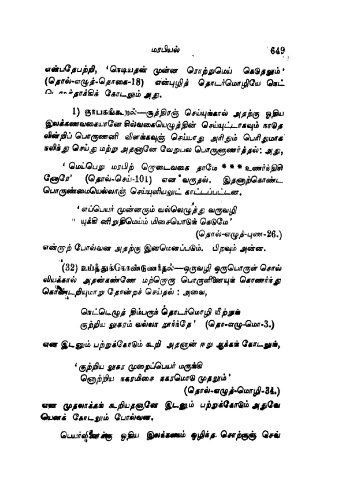 மரபியல் 649
என்பதேபற்றி, 'நெடியதன் முன்ன ரொற்றுமெய் கெடுதலும்'
(தொல்-எழுத்-தொகை-18) என்புழித் தொடர்மொழியே கெட்
கோடலும் அது.
1) ஞாபகங்கூறல்—சூத்திரஞ் செய்யுங்கால் அதற்கு ஓதிய
இலக்கணவகையானே சில்வகையெழுத்தின் செய்யுட்டாகவும் நாடுத
லின்றிப் பொருணனி விளக்கவுஞ் செய்யாது அரிதும் பெரிதுமாக
நலிந்து செய்து மற்று அதனானே வேறுபல பொருளுணர்த்தல்: அது,
'மெய்பெறு மரபிற் றொடைவகை தாமே * * * உணர்ந்திசி
னோரே' (தொல்-செய்-101) என வருதல். இதனாற்கொண்ட
பொருண்மையெல்லாஞ் செய்யுளியலுட் காட்டப்பட்டன.
'எப்பெயர் முன்னரும் வல்லெழுத்து வருவழி
யுக்கி னிறுதிமெய்ம் மிசையொடுங் கெடுமே'
(தொல்-எழுத்-புண-26.)
என்றாற் போல்வன அதற்கு இனமெனப்படும். பிறவும் அன்ன.
(32) உய்த்துக்கொண்டுணர்தல்—ஒருவழி ஒருபொருள் சொல்
லியக்கால் அதன்கண்ணே மற்றொரு பொருளினையுங் கொணர்ந்து
தோன்றச் செய்தல் : அவை,
நெட்டெழுத் திம்பருந் தொடர்மொழி யீற்றுங்
குற்றிய லுகரம் வல்லா றூர்ந்தே' (தொ-எழு-மொ-3.)
என இடனும் பற்றுக்கோடும் கூறி அதனான் ஈறு ஆக்கங் கோடலும்,
'குற்றிய லுகர முறைப்பெயர் மருங்கி
னொற்றிய நகரமிசை நகரமொடு முதலும்'
(தொல்-எழுத்-மொழி-34.)
என முதலாக்கங் கூறியதனானே இடனும் பற்றுக்கோடும் அதுவே
யெனக் கோடலும் போல்வன.
பெயர்வினைக்கு ஓதிய இலக்கணம் ஒழிந்த சொற்குஞ் செல்